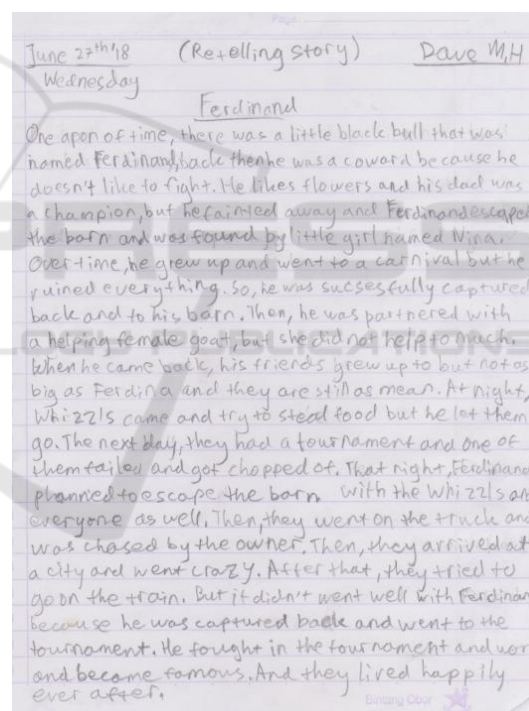 Page
June 27th/18 (Retelling story) Dave M,H
Wednesday
Ferdinand
One apon of time, there was a little black bull that was
named Ferdinand, back then he was a coward because he
doesn't like to fight. He likes flowers and his dad was
a champion, but he fainted away and Ferdinand escaped
the barn and was found by little girl named Nina.
Over time, he grew up and went to a carnival but he
ruined everything. So, he was sucsesfully captured
back and to his barn. Then, he was partnered with
a helping female goat, but she did not help to much.
When he came back, his friends grew up to but not as
big as Ferdina and they are still as mean. At night,
Whizzls came and try to steal food but he let them
go. The next day, they had a tournament and one of
them failed and got chopped of. That night, Ferdinand
planned to escape the barn with the Whizzls an
everyone as well. Then, they went on the truck an
was chased by the owner. Then, they arrived at
a city and went crazy. After that, they tried to
go on the train. But it didn't went well with Ferdinan
because he was captured back and went to the
tournament. He fought in the tournament and won
and became famous. And they lived happily
ever after.
Bintang Obor